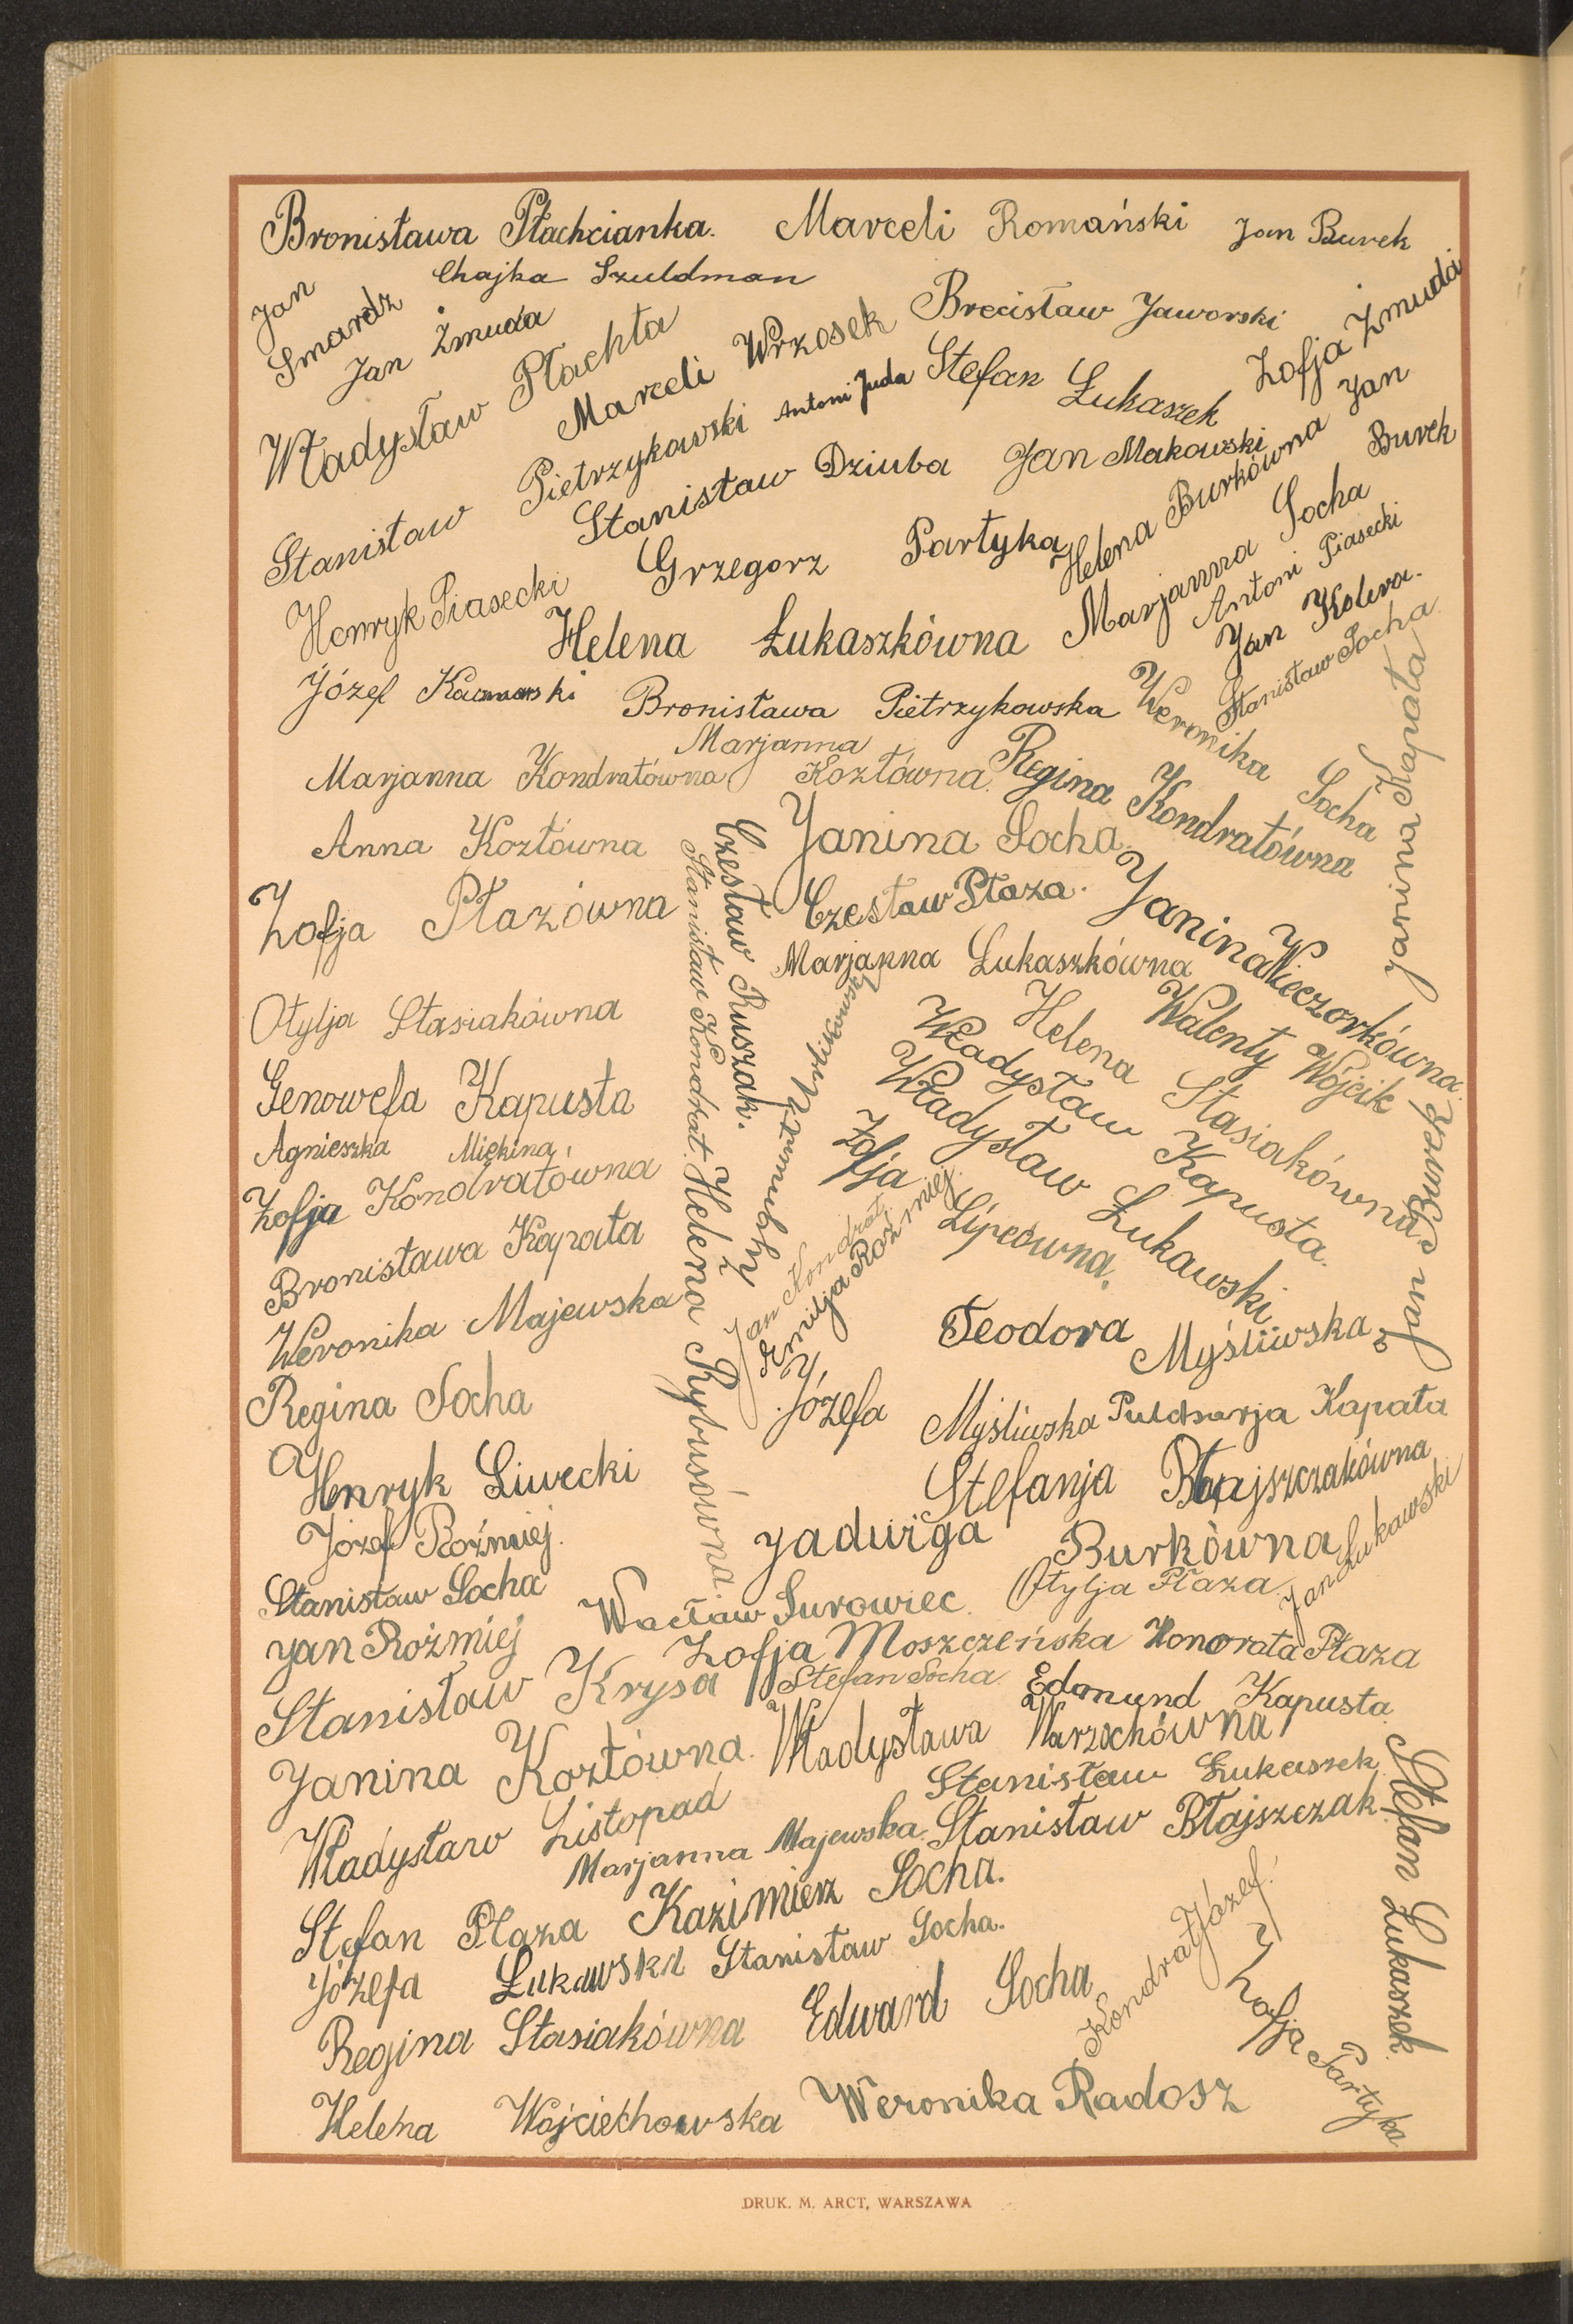 Bronisława Płachcianka. Marceli Romański Jan Burek
Jan Smardz
Chajka Szuldman
Jan Żmuda
Władysław Płachta
Marceli Wrzosek
Brecisław Jaworski
Zofja Żmuda
Stanisław Pietrzykowski
Antoni Juda
Stefan Łukaszek
Stanisław Dziuba
Jan Makowski
Helena Burkówna
Jan Burek
Henryk Piasecki
Grzegorz Partyka
Marjanna Socha
Antoni Piasecki
Helena Łukaszkówna
Jan Kolera.
Stanisław Socha
Józef
Bronisława Pietrzykowska
Weronika Socha
Janina Kapała
Marjanna Kondratówna
Marjanna Kozłówna.
Regina Kondratówna
Anna Kozłówna
Janina Socha.
Zofja Płazówna
Czesław Ruszak.
Stanisław Kondrat.
Czesław Płaza.
Janina Wieczorkówna.
Marjanna Łukaszkówna
Otylja Stasiakówna
Walenty Wójcik
Helena Stasiakówna
Genowefa Kapusta
Władysław Kapusta.
Agnieszka Miękina
Władysław Łukawski
Zofja Kondratówna
Zofja Lipcówna.
Jan Burek
Bronisława Kapała
Helena Rybusówna.
Jan Kondrat.
Emilja Roźmiej.
Weronika Majewska
Teodora Myśliwska
Regina Socha
Józefa Myśliwska
Pulcharja Kapała
Henryk Liwecki
Stefanja Błajszczakówna
Józef Roźmiej.
Jadwiga Burkówna
Jan Łukawski
Stanisław Socha
Wacław Surowiec.
Otylja Płaza.
Jan Roźmiej
Zofja Moszczeńska
Honorata Płaza
Stanisław Krysa
Stefan Socha.
Edmund Kapusta.
Janina Kozłówna.
Władysława Warzochówna
Stanisław Łukaszek
Stefan Łukaszek.
Władysław Listopad
Marjanna Majewska.
Stanisław Błajszczak
Stefan Płaza
Kazimierz Socha.
Józefa Łukawska
Stanisław Socha.
Kondrat Józef.
Regina Stasiakówna
Edward Socha
Zofja Partyka
Helena Wojciechowska
Weronika Radosz
DRUK. M. ARCT, WARSZAWA